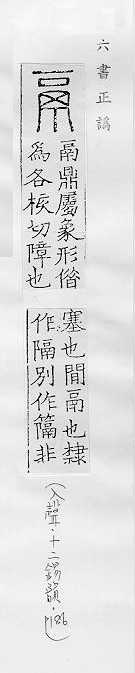 六書正譌
鬲
鬲鼎屬象形借
爲各核切障也
塞也間鬲也隸
作隔別作篇非
(入聲·十二錫韻·186)